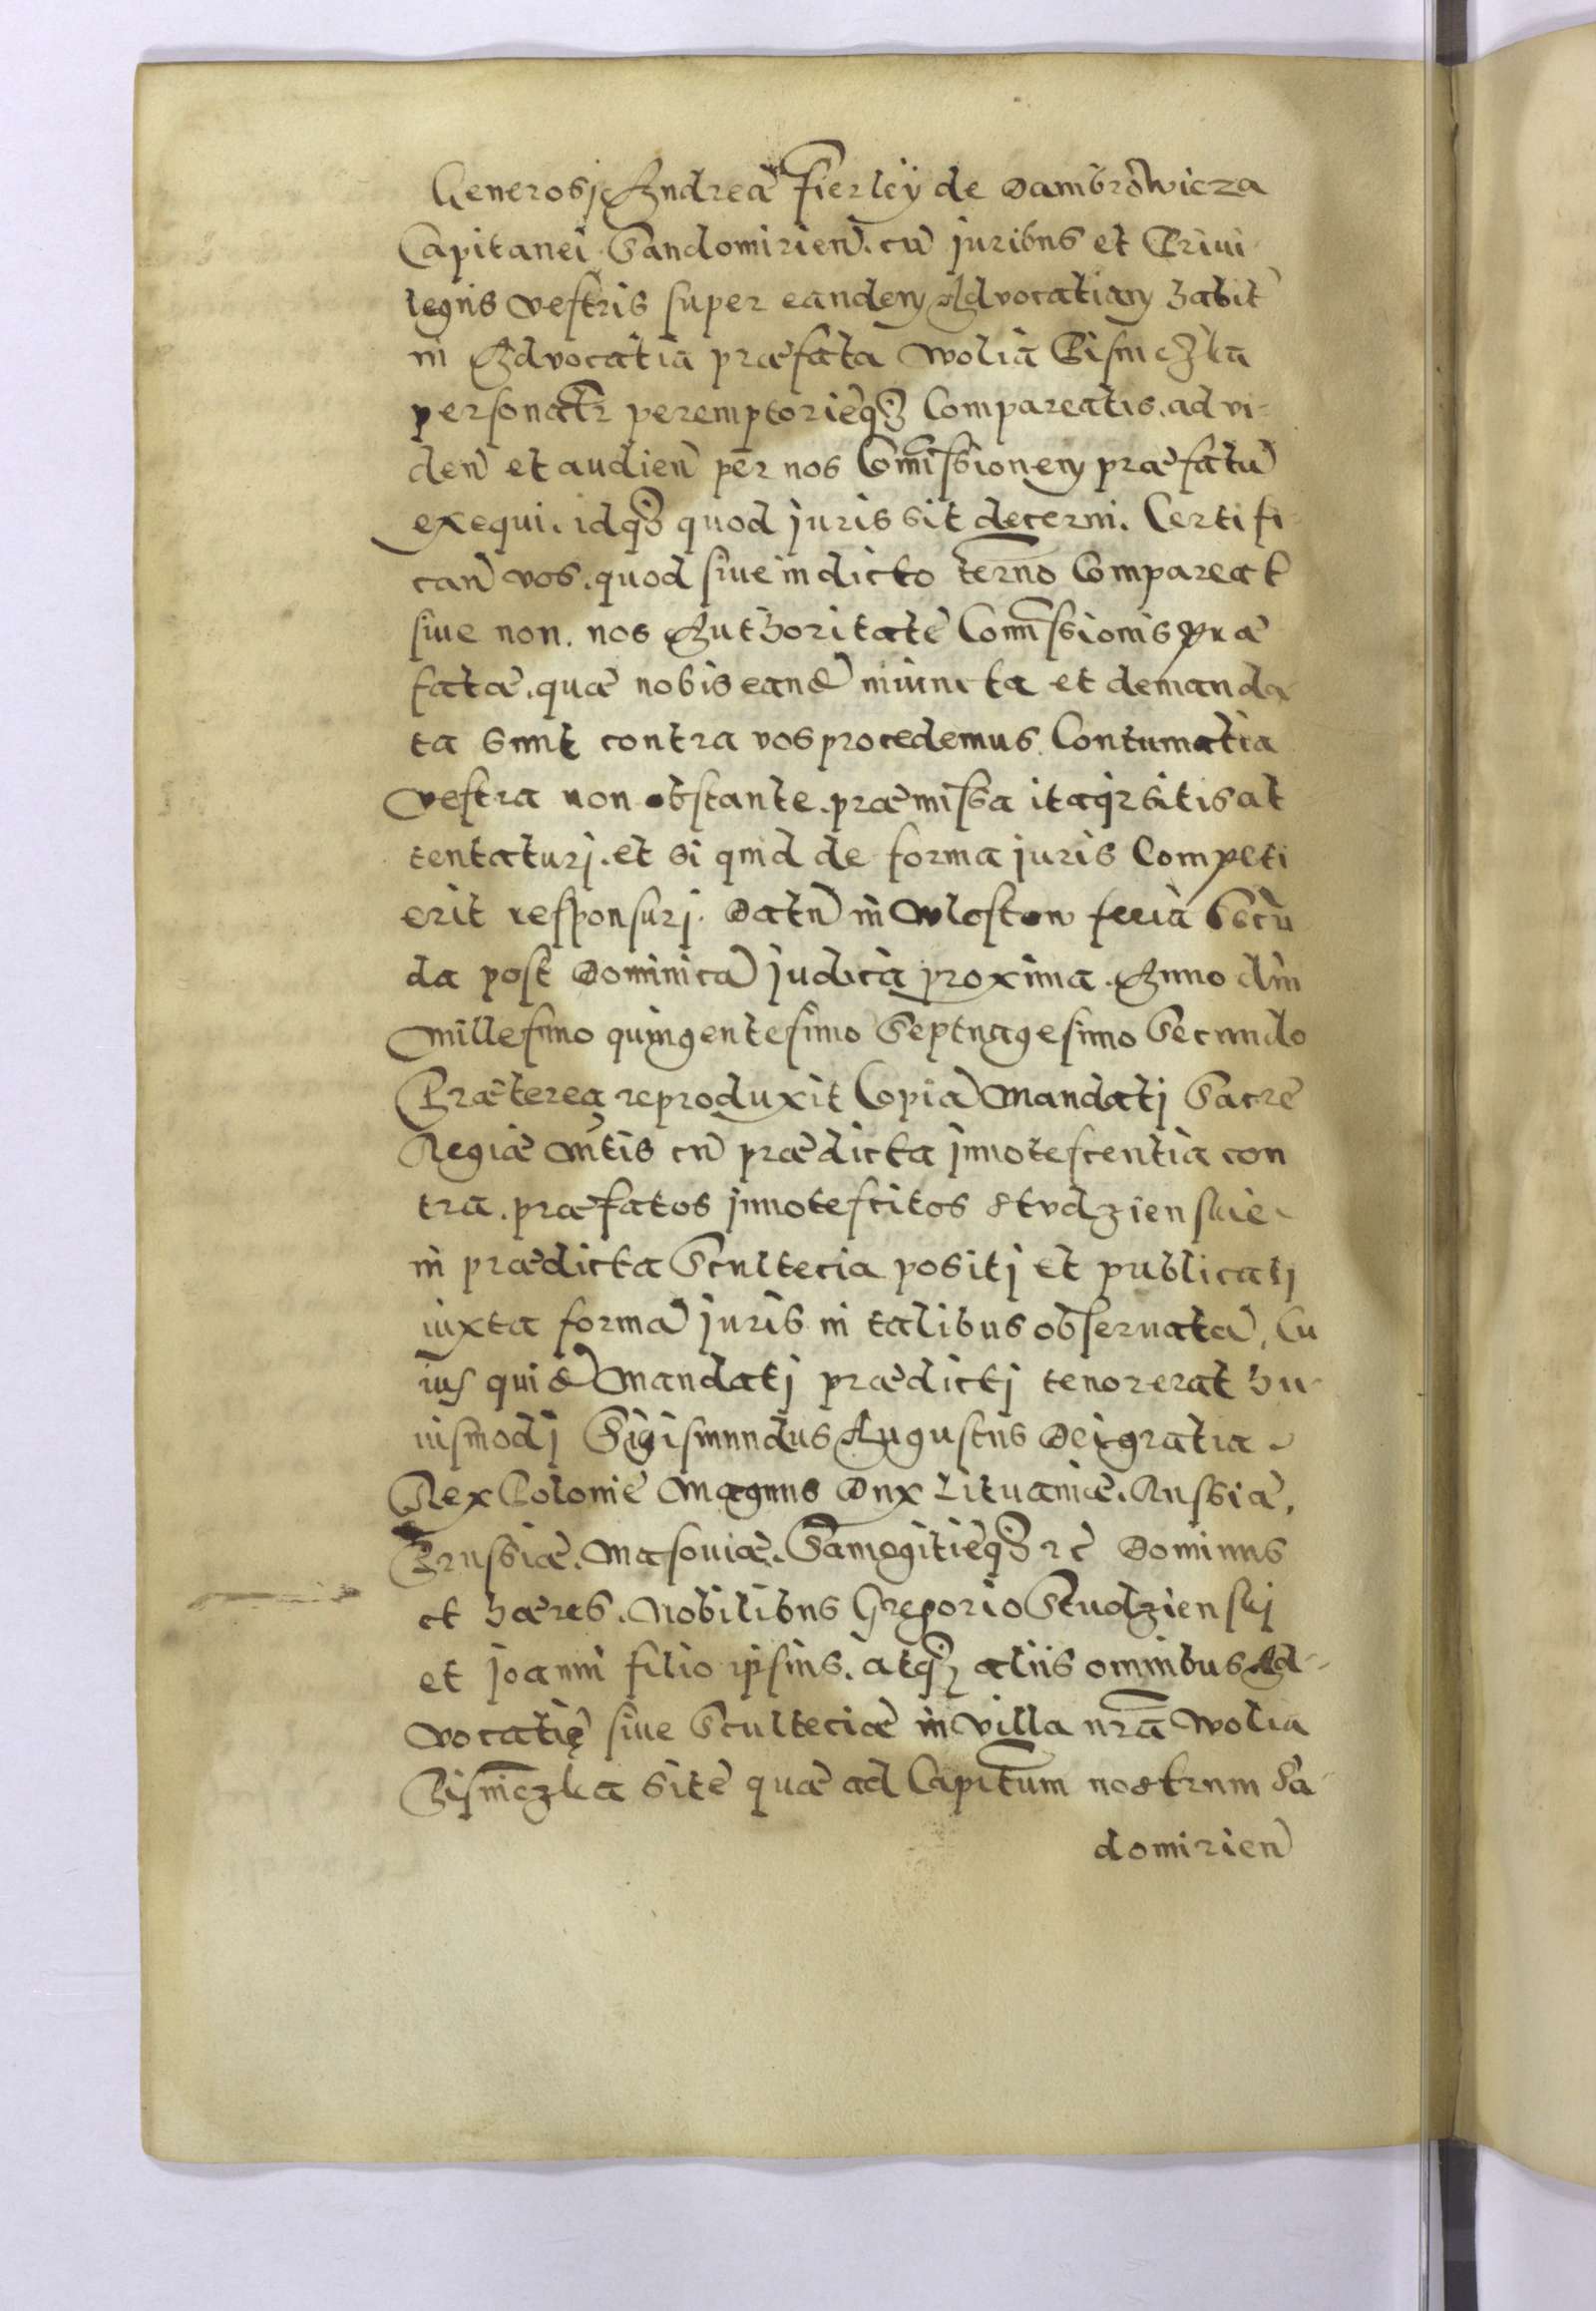 Generosj Andreæ Fierleÿ de Dambrowicza
Capitanei Sandomirien̄. cū juribus et Priui
legijs vestris super eandem Advocatiam habit̄
in Advocatia præfata Wolia Pismeczka
personatr̄ peremptorieq₃ Compareatis. ad vi=
den̄ et audien̄ per nos Com̄issionem præfatā
exequi. idq₃ quod juris sit decerni. Certifi
can̄ vos. quod siue in dicto terno̅ Compareat
siue non. nos Authoritate Com̄issionis præ
fatæ. quæ nobis eand̄ iniuncta et demanda
ta sunt contra vos procedemus. Contumatia
vestra non obstante. præmissa itaq₃ sitis at
tentaturj. et si quid de forma juris Competi
erit responsurj. Datn̄ in Wloston feria Secū
da post Dominicā judica proxima. Anno dni̅
millesimo quingentesimo Septuagesimo Secundo
Præterea reproduxit Copiā Mandatj Sacre
Regiæ Mt̄is cū prædicta jnnotescentia con
tra. præfatos jnnotescitos Studzienskie
in prædicta Scultecia positj et publicatj
iuxta formā juris in talibus obseruatā. Cu
ius quid̄ Mandatj prædictj tenor erat hu
iusmodj Sigismundus Augustus Dei gratia
Rex Polonie Magnus Dux Lituaniæ. Russiæ.
Prussiæ. Masouiæ. Samogitieq₃ ꝛc̄ Dominus
et hæres. Nobilibus Gregorio Studzienskj
et joanni filio ipsius. atq₃ aliis omnibus Ad=
vocatię siue Sculteciæ in villa nr̄a Wolia
Pismeczka site quæ ad Capit̄um nostrum Sā
domirien̄